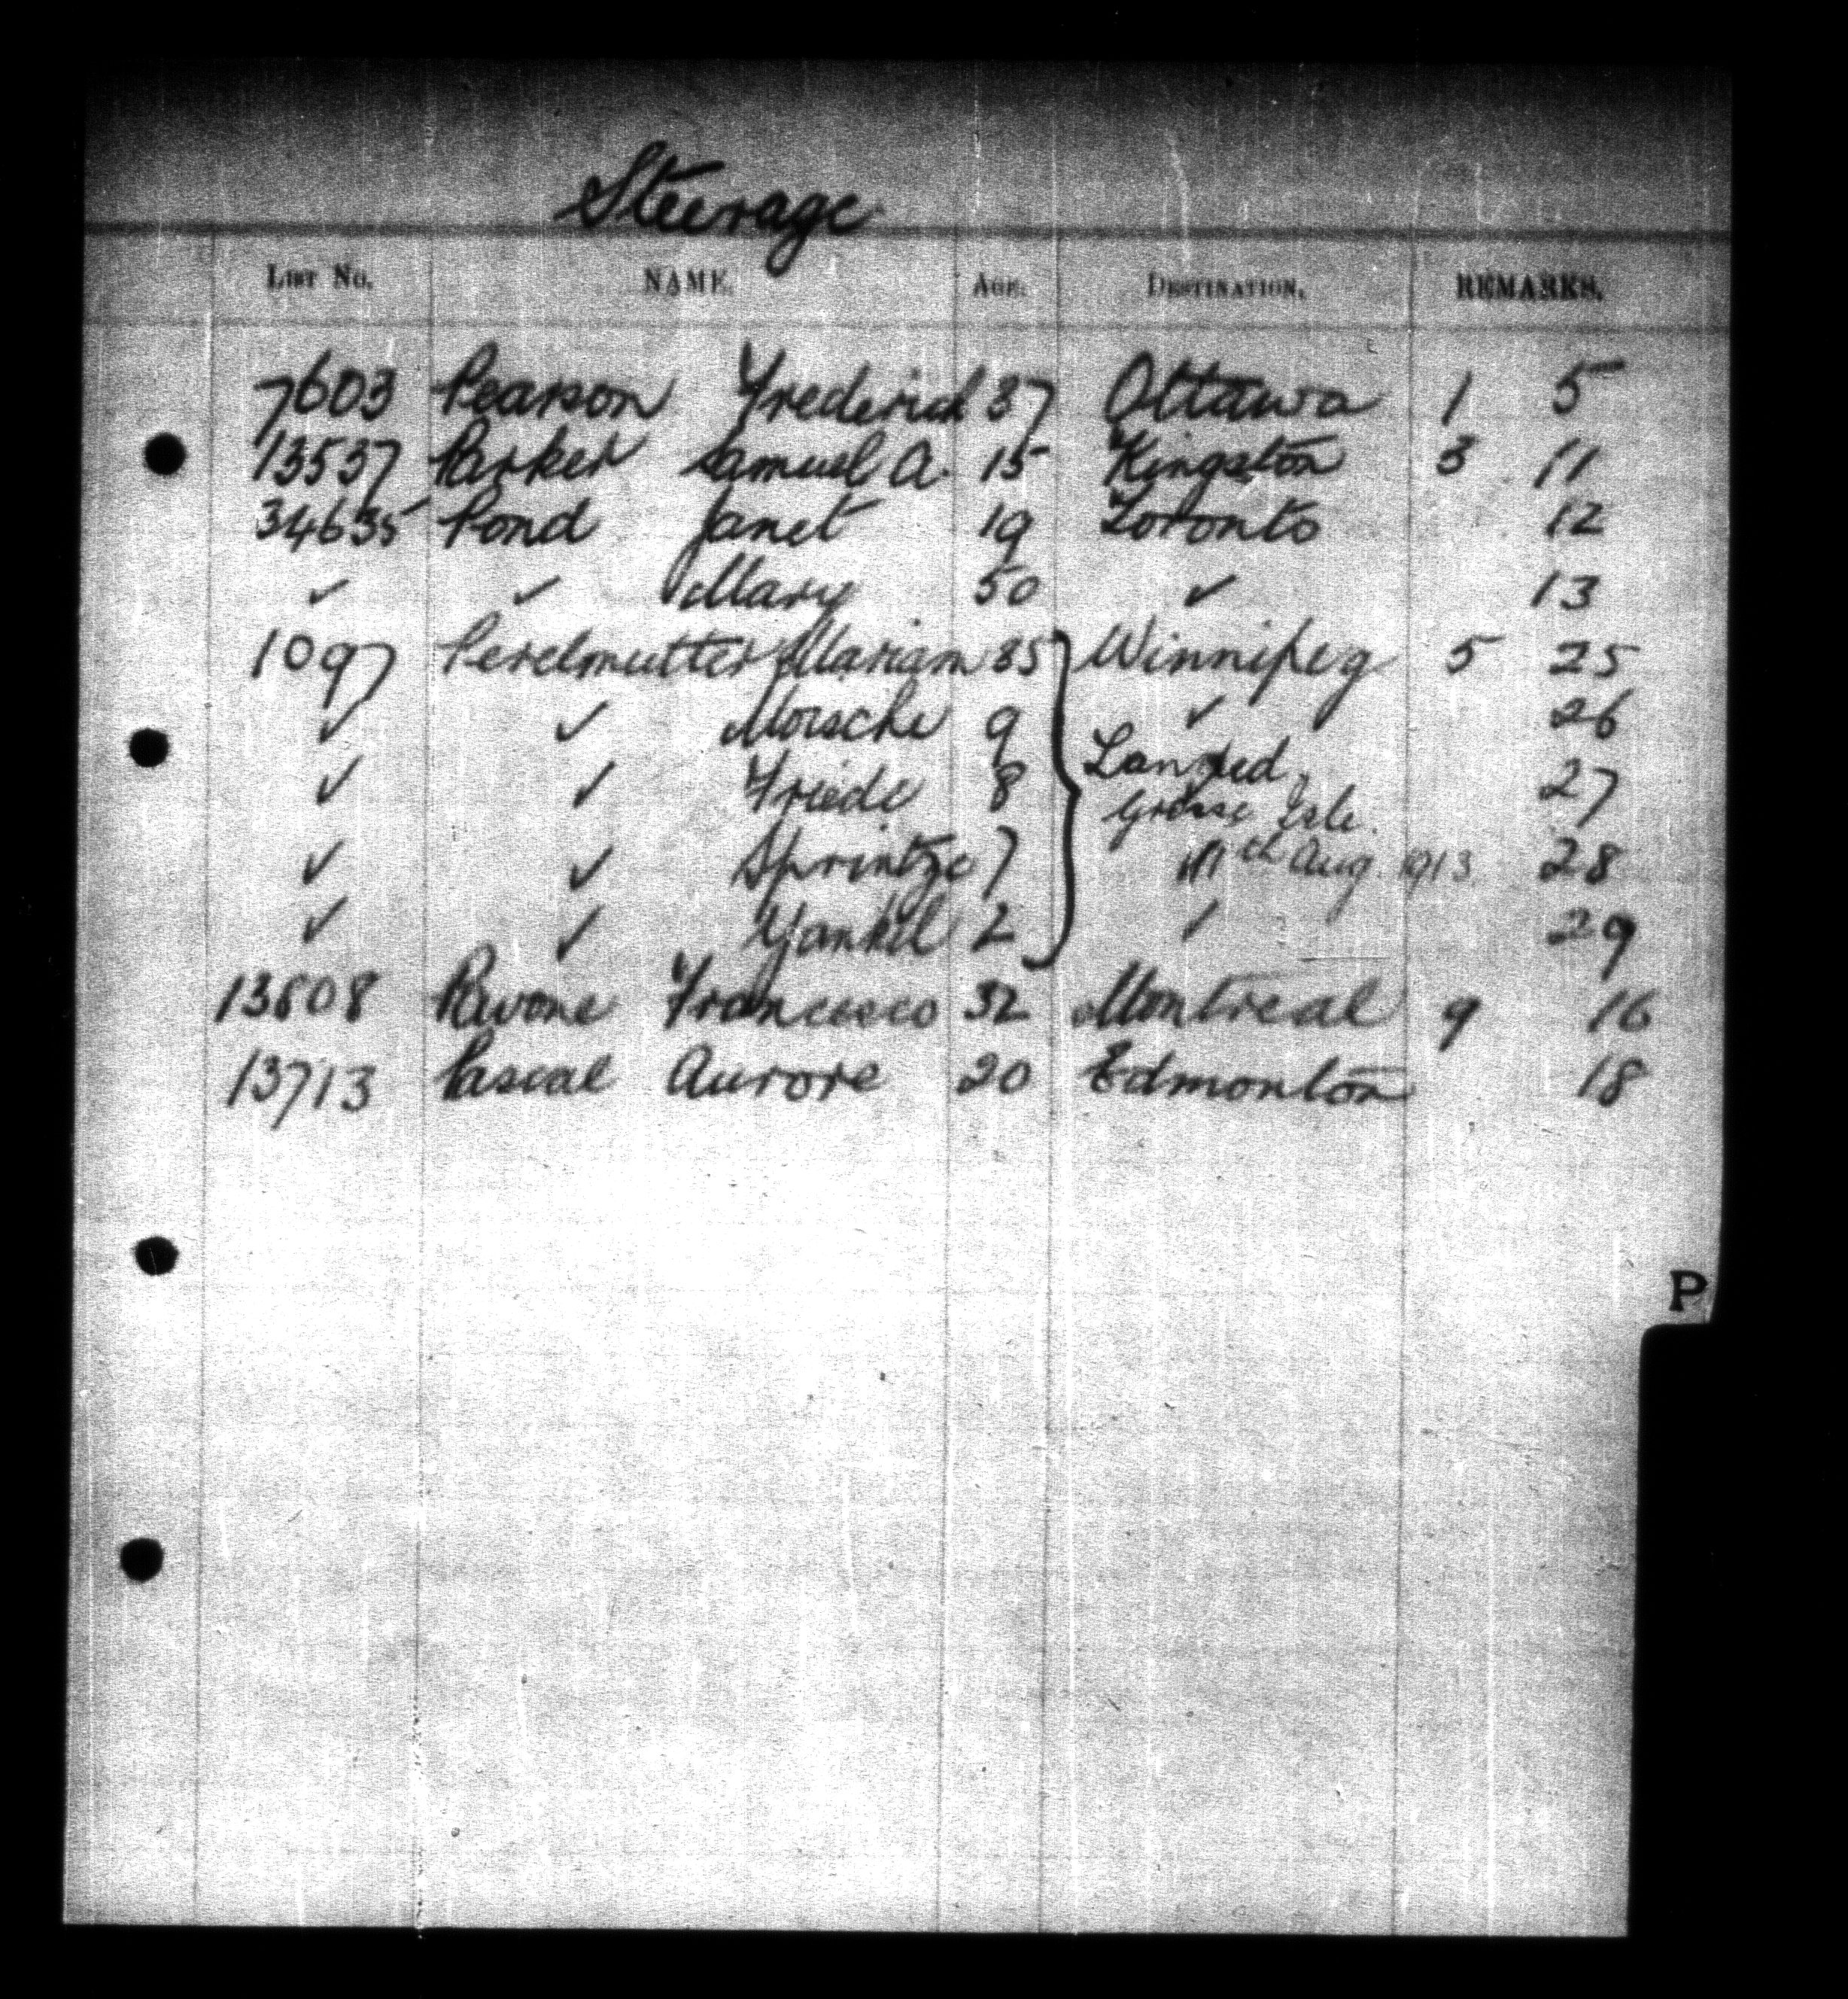 Steerage
LIST NO. NAME. AGE. DESTINATION. REMARKS.
7603 Pearson Frederick 37 Ottawa 1 5
13537 Parker Samuel A. 15 Kingston 3 11
34635 Pond Janet 19 Toronto 12
✓ ✓ Mary 50 ✓ 13
1097 Perelmutter Mariam 35 Winnipeg 5 25
✓ ✓ Moische 9 ✓ 26
✓ ✓ Friede 8 Landed 27
Grosse Isle.
✓ ✓ Sprintze 7 11th Aug. 1913. 28
✓ ✓ Yankel 2 ✓ 29
Francesco 32 Montreal 9 16
13713 Pascal Aurore 20 Edmonton 18
P